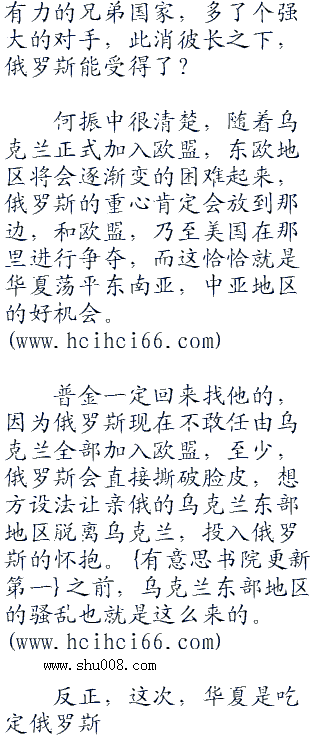 有力的兄弟国家，多了个强
大的对手，此消彼长之下，
俄罗斯能受得了？
何振中很清楚，随着乌
克兰正式加入欧盟，东欧地
区将会逐渐变的困难起来，
俄罗斯的重心肯定会放到那
边，和欧盟，乃至美国在那
里进行争夺，而这恰恰就是
华夏荡平东南亚，中亚地区
的好机会。
(www.hcihci66.com)
普金一定回来找他的，
因为俄罗斯现在不敢任由乌
克兰全部加入欧盟，至少，
俄罗斯会直接撕破脸皮，想
方设法让亲俄的乌克兰东部
地区脱离乌克兰，投入俄罗
斯的怀抱。{有意思书院更新
第一}之前，乌克兰东部地区
的骚乱也就是这么来的。
(www.hcihci66.com)
www.shu008.com
反正，这次，华夏是吃
定俄罗斯